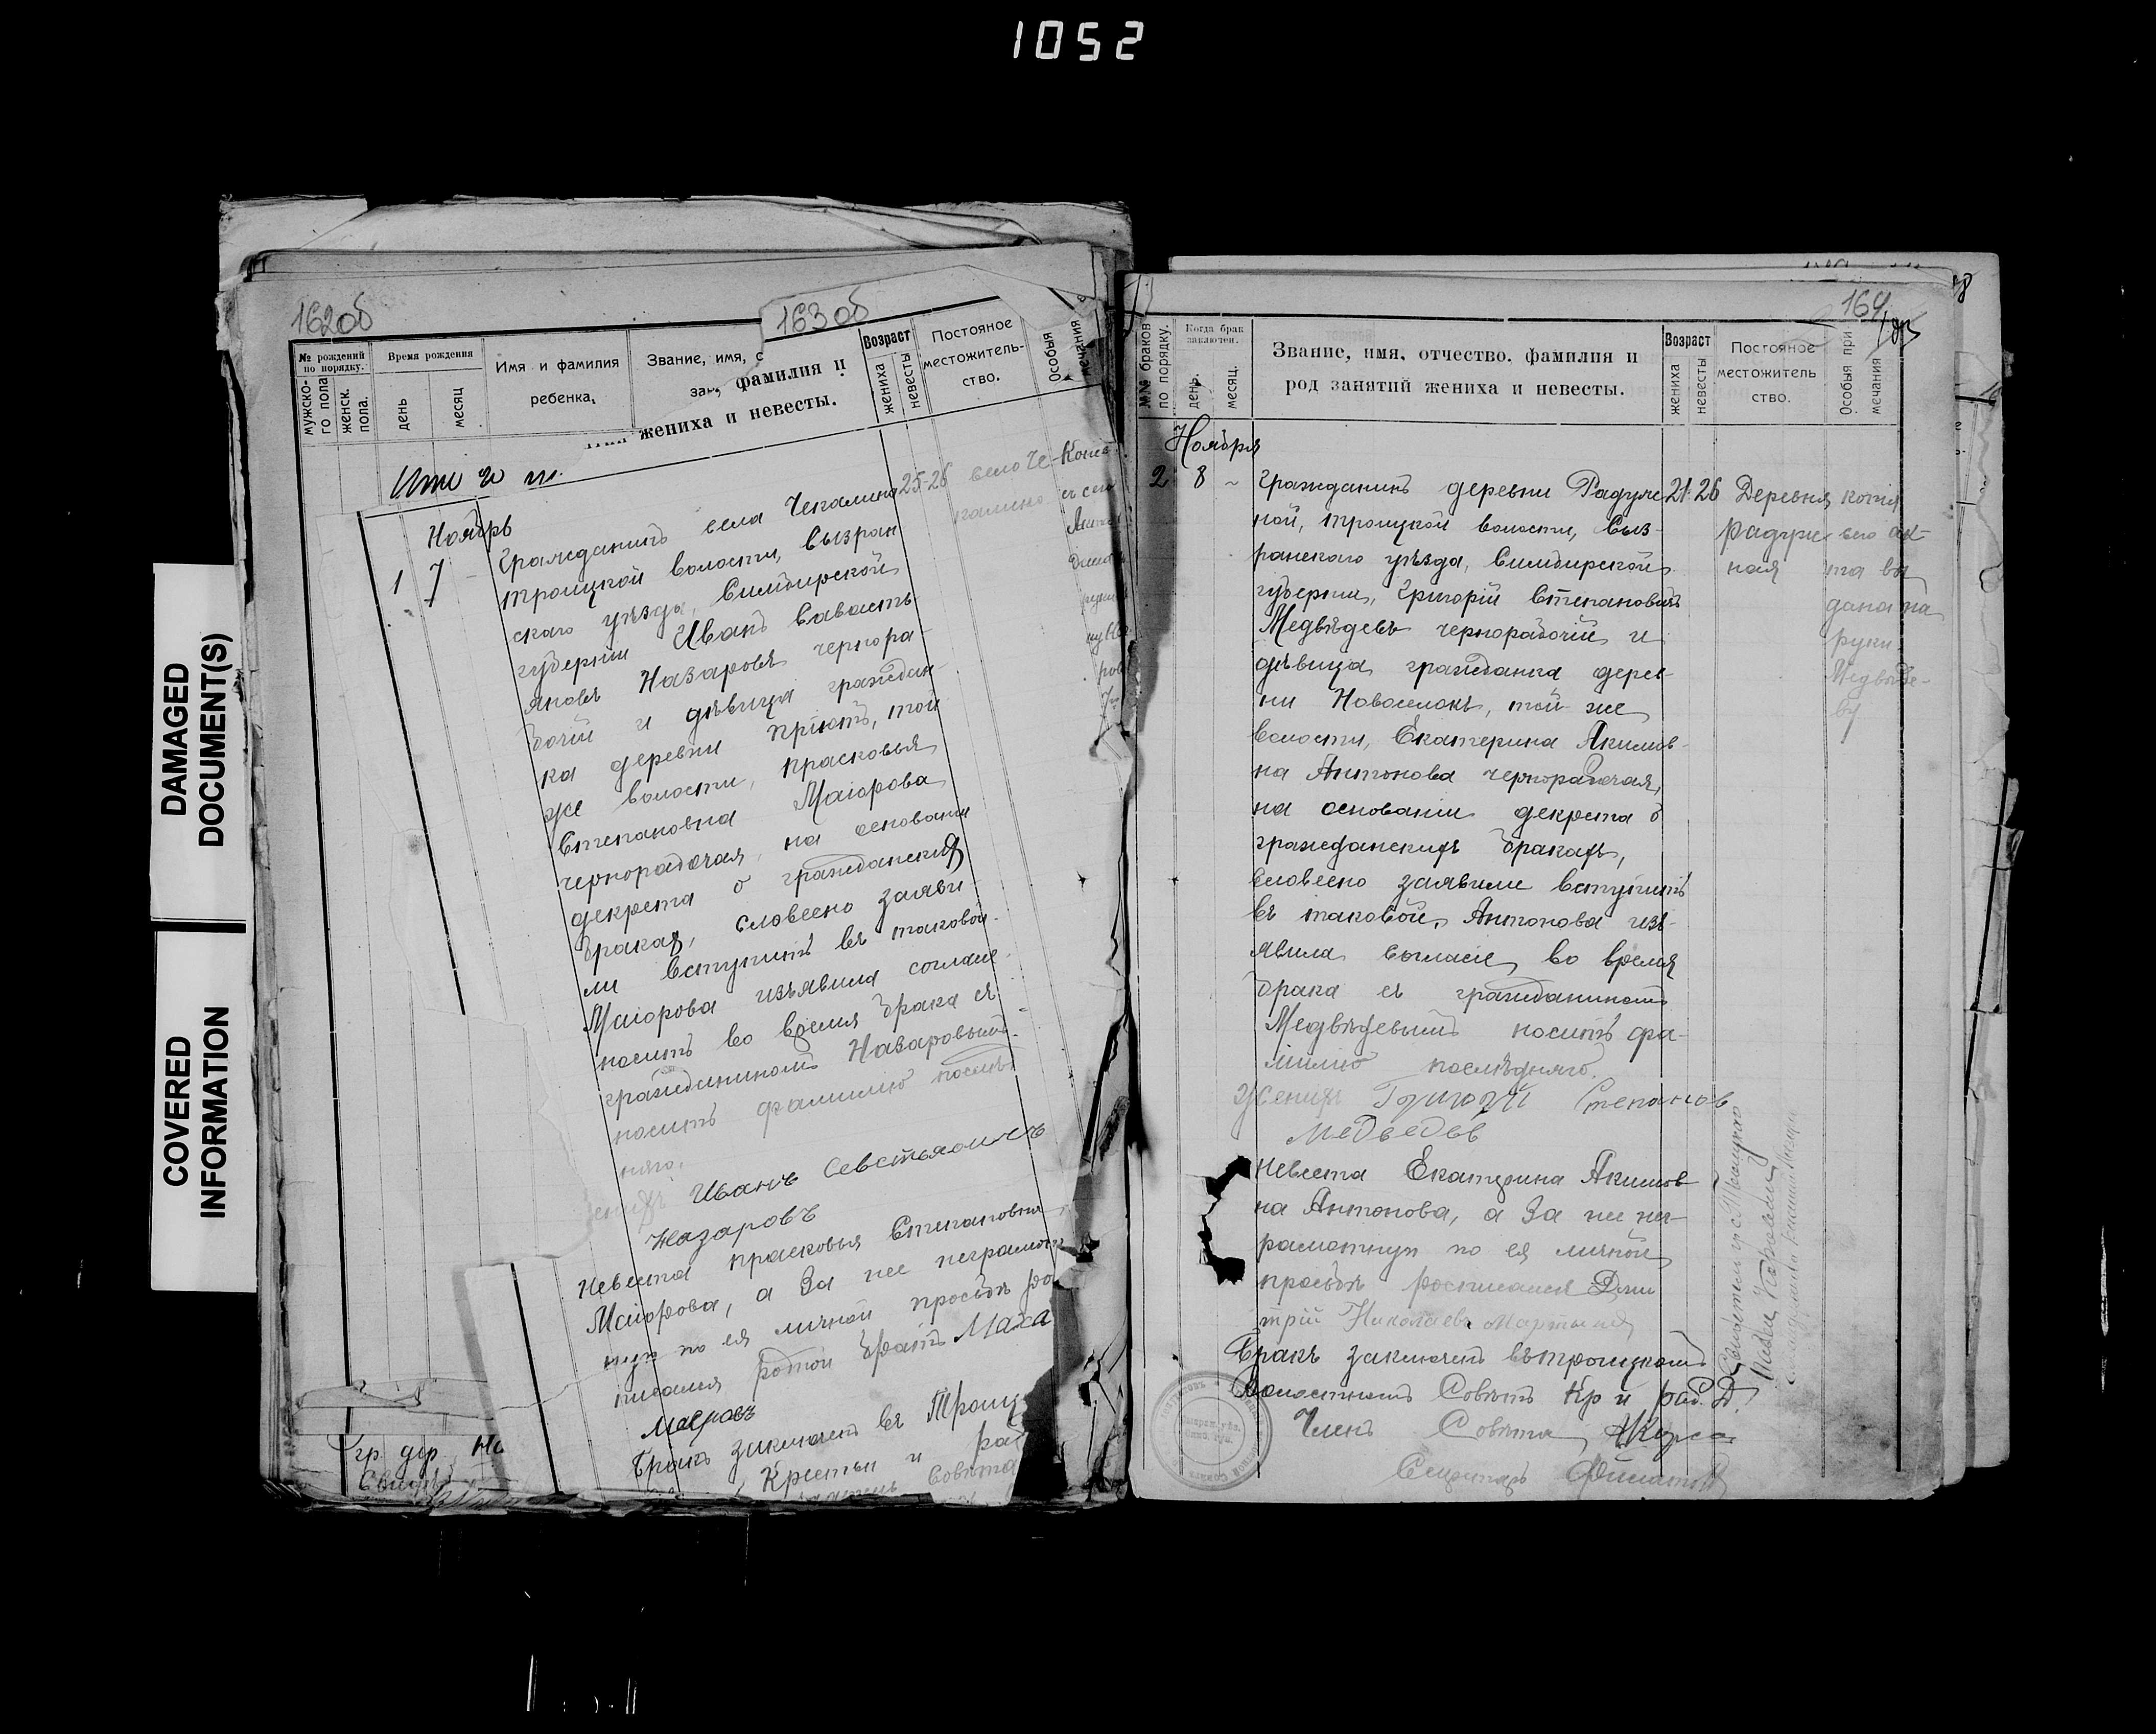 1052
DAMAGED
DOCUMENT(S)
COVERED
INFORMATION
162об
163об
№ рождений
по порядку.
мужско-
го пола
женск.
пола.
Время рождения
день
месяц
Имя и фамилия
ребенка,
Звание, имя, с
фамилия и
жениха и невесты.
Возраст
жениха
невесты
Постояное
местожитель-
ство.
Особыя
мечания
Ноябрь
1 7
Гражданинъ села Чекалино 25-26 село Че-
троицкой волости, Сызран калино
скаго уѣзда, Симбирской
губерніи Иванъ Савастъ
яновъ Назаровъ чернора-
бочій и дѣвица граждан-
ка деревни Пріютъ, той
же волости, Прасковья
Степановна Маіорова
чернорабочая, на основаніи
декрета о гражданских
браках, словесно заяви-
ли вступить въ таковой.
Маіорова изъявила согласіе
носить во время брака съ
гражданиномъ Назаровымъ
носить фамилію послѣд
няго.
Иванъ Севстьяоничъ
Назаровъ
Невеста Прасковья Степановна
Маіорова, а За нее неграмот
ную по ея личной просьбѣ ро
писался родной братъ Маха
Маеровъ
Бракъ заключенъ въ Троиц
Крестьян и раб
Совѣта
гр. дер. Но
164
№№ браков
по порядку.
Когда брак
заключен.
день.
месяц.
Звание, имя, отчество. фамилия и
род занятий жениха и невесты.
Возраст
жениха
невесты
Постояное
местожитель
ство.
Особыя при
мечания
Ноября
2 8 ~ Гражданинъ деревни Радуж 21 26 Деревня копія
ной, троицкой волости, Сыз- Радуж- сего ак-
ранскаго уѣзда, Симбирской ная та вы
губерніи, Григорій Степановичъ дана на
Медвѣдевъ чернорабочій и руки
дѣвица гражданка дерев- Медвѣде-
ни Новоселокъ, той же ву
волости, Екатерина Акимов-
на Антонова чернорабочая,
на основаніи декрета о
гражданскихъ бракахъ,
словесно заявили вступить
въ таковой, Антонова изъ-
явила согласіе, во время
брака съ гражданиномъ
Медвѣдевымъ носить фа-
милію послѣдняго.
Женихъ Григорій Степанов
Медведев
Невеста Екатерина Акимов
на Антонова, а За нее не-
грамотную по ея личной
просьбѣ росписался Дми
трій Николаевъ Мартынов
Бракъ заключенъ въ троицкомъ
Волостномъ Совѣтѣ Кр и раб. Д.
Членъ Совѣта
Секретарь Филатов